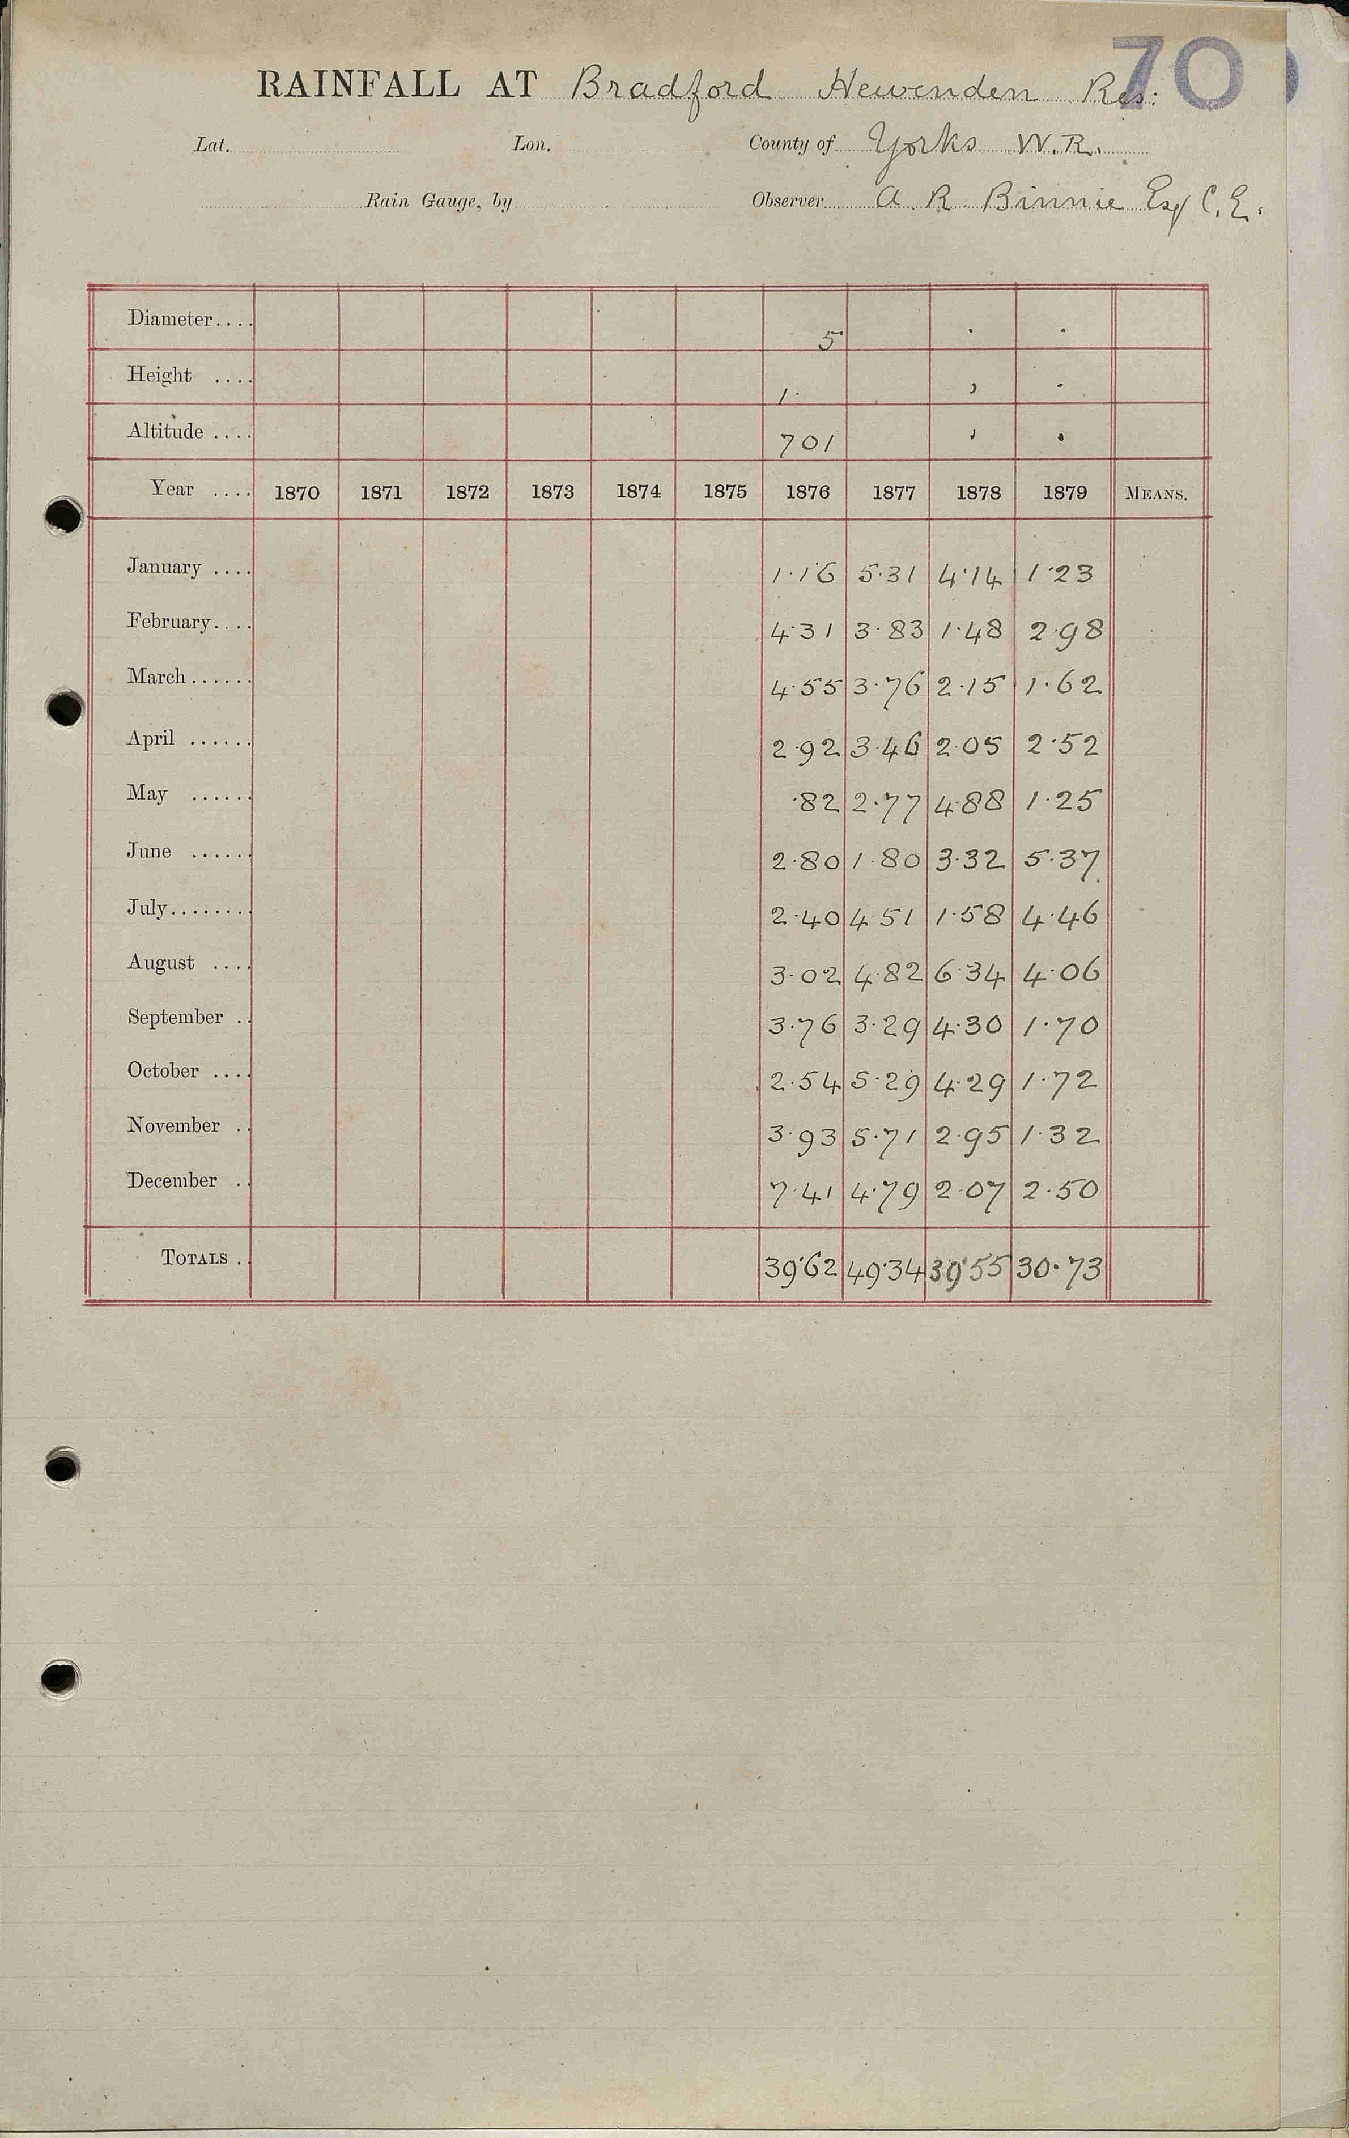 70
RAINFALL AT Bradford Hewenden Res:
Lat. Lon. County of Yorks W.R.
Rain Gauge, by Observer A. R. Binnie Esq C.E.
Diameter.... 5
Height .... 1.
Altitude .... 701
Year .... 1870 1871 1872 1873 1874 1875 1876 1877 1878 1879 MEANS.
January .... 1.16 5.31 4.14 1.23
February.... 4.31 3.83 1.48 2.98
March...... 4.55 3.76 2.15 1.62
April ...... 2.92 3.46 2.05 2.52
May ...... .82 2.77 4.88 1.25
June ...... 2.80 1.80 3.32 5.37
July........ 2.40 4.51 1.58 4.46
August .... 3.02 4.82 6.34 4.06
September .. 3.76 3.29 4.30 1.70
October .... 2.54 5.29 4.29 1.72
November .. 3.93 5.71 2.95 1.32
December .. 7.41 4.79 2.07 2.50
TOTALS .. 39.62 49.34 39.55 30.73